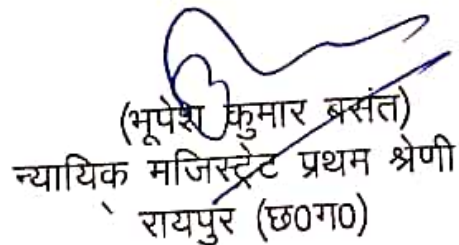 (भूपेश कुमार बसंत)
न्यायिक मजिस्ट्रेट प्रथम श्रेणी
रायपुर (छ0ग0)